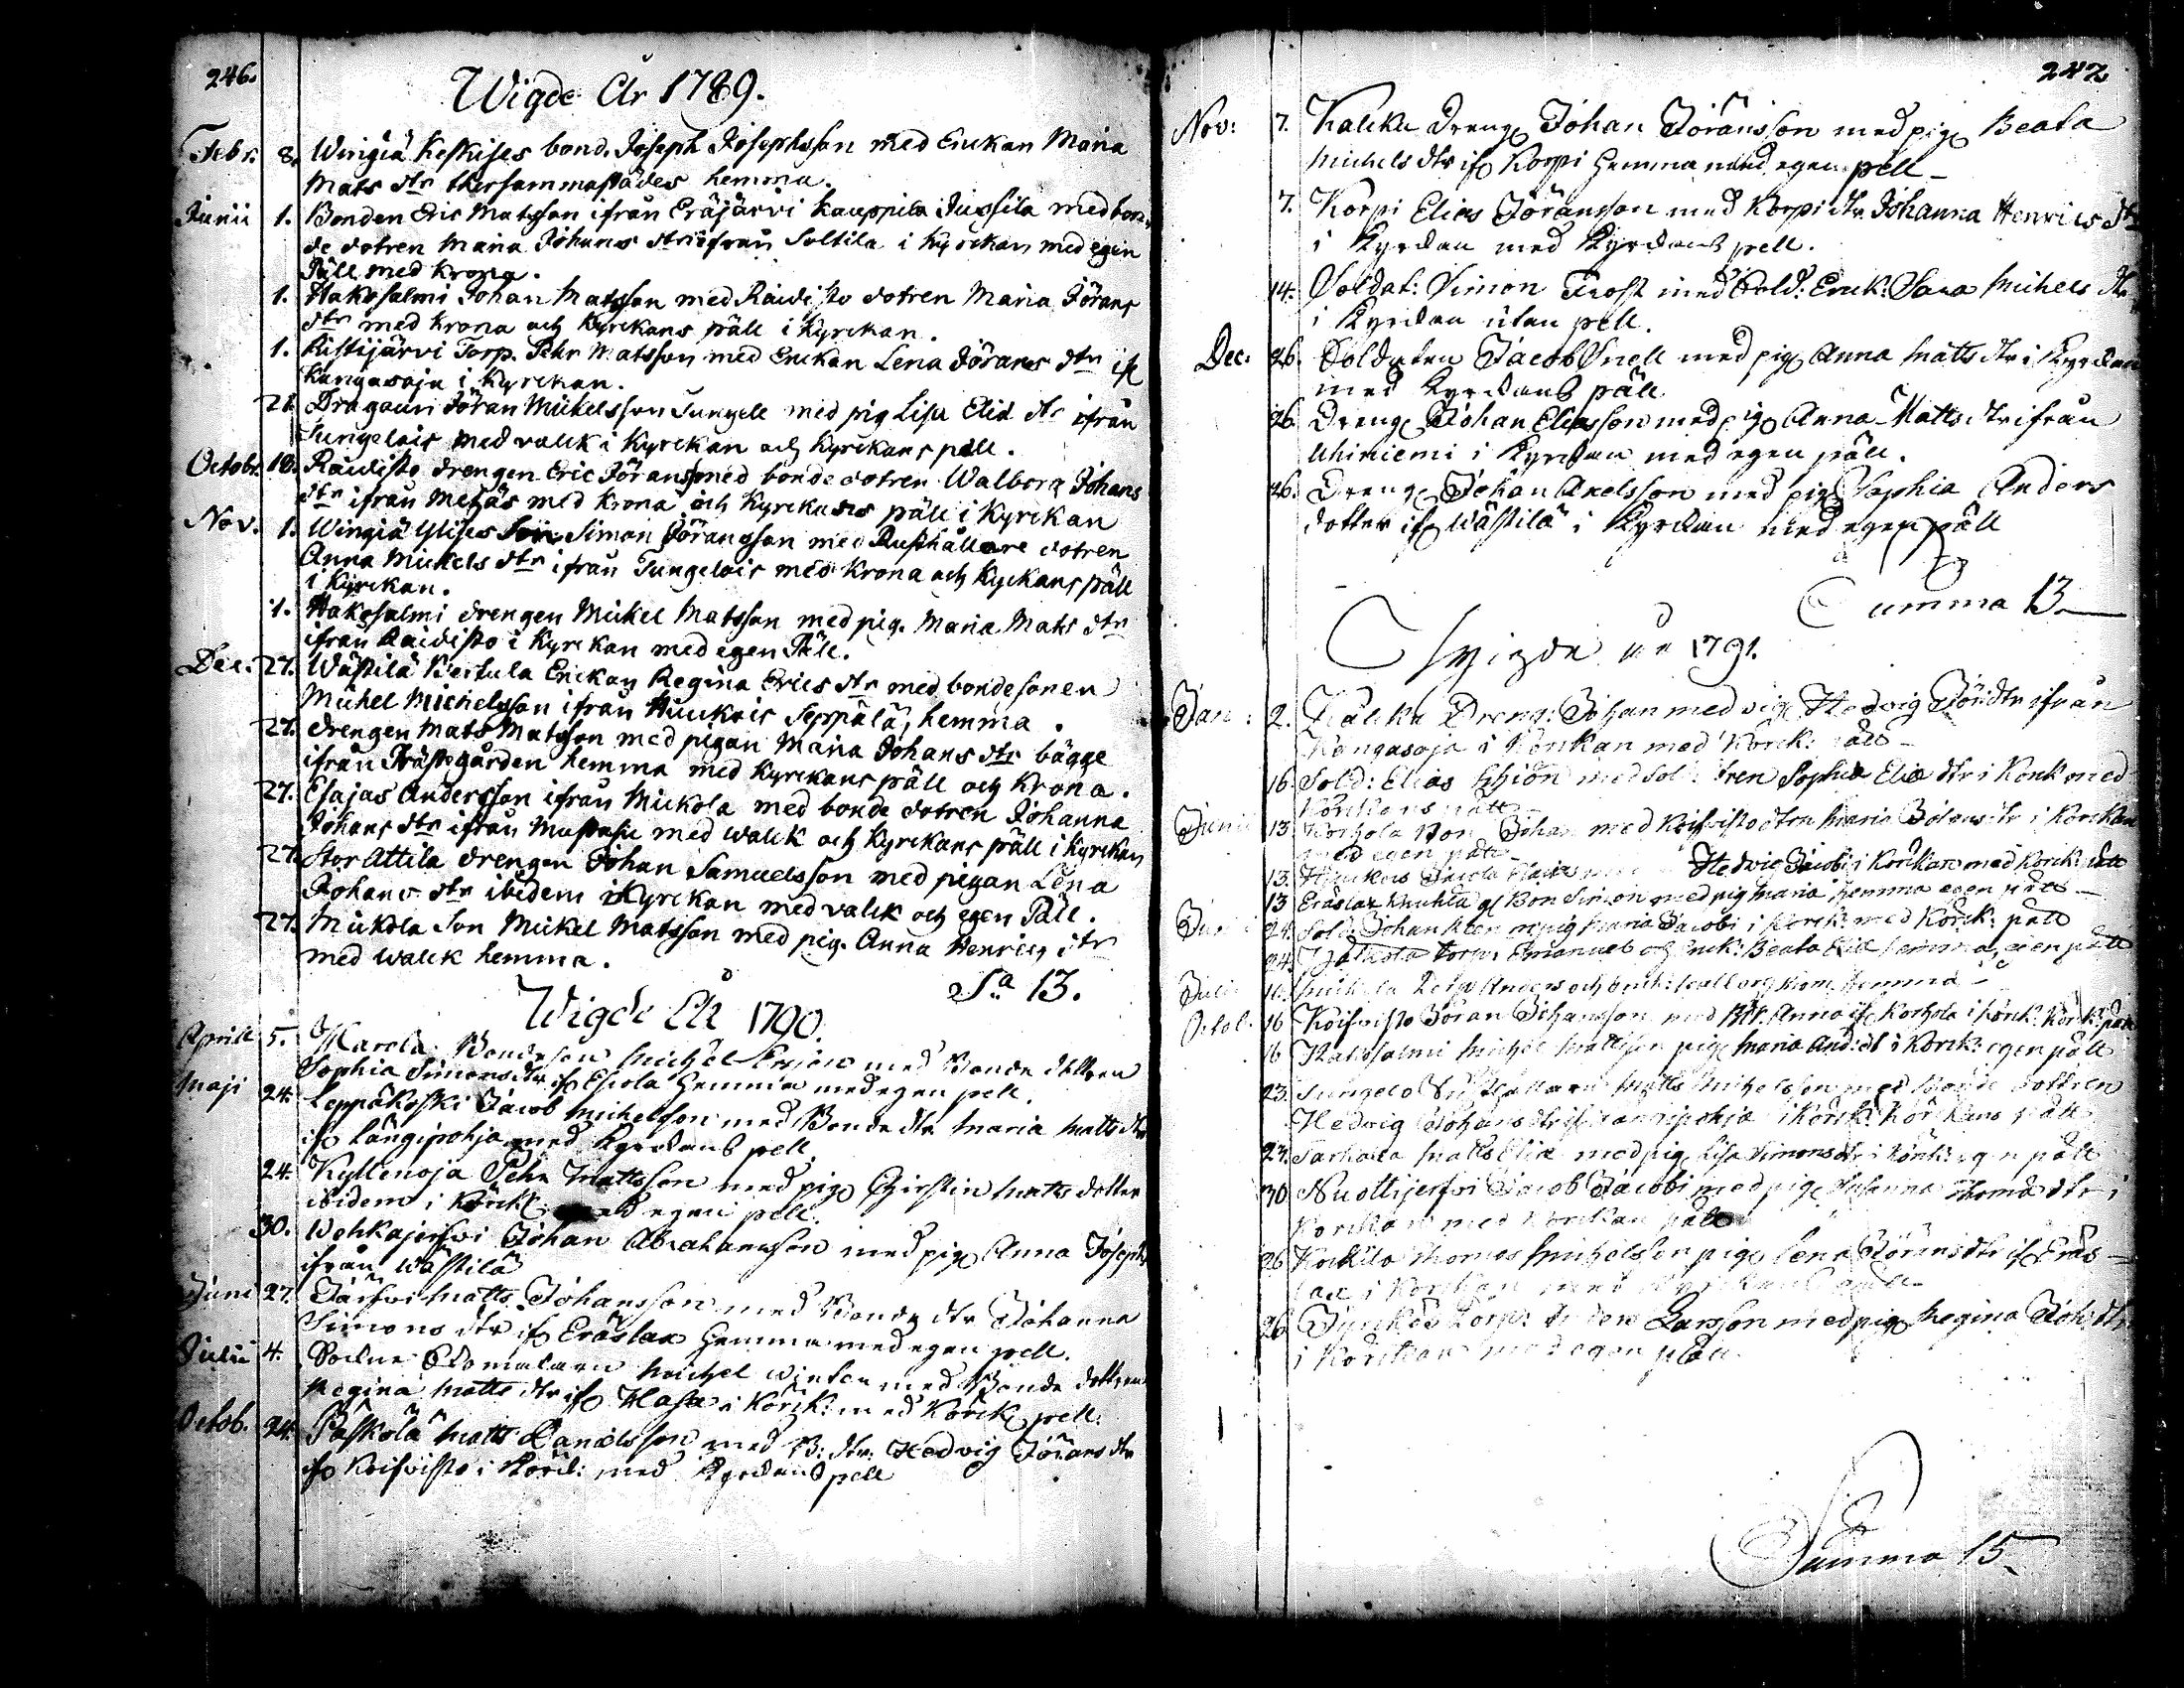 246.
Wigde År 1789.
Febr. 8. Wirigiä Keskises bond. Joseph Josephsson med Enkan Maria
Mats dtr thersammastädes hemma.
Junii 1. Bonden Eric Matsson ifrån Eräjärvi Kauppila Jussila med bon-
de dotren Maria Johans dtr ifrån Soltila i Kyrckan med egen
Päll med Krona.
1. Hakosalmi Johan Matsson med Raidisto dotren Maria Jörans
dtr med Krona och Kyrckans päll i Kyrckan.
1. Ristijärvi Torp. Pehr Matsson med Enckan Lena Jörans dtr if
Kangasoja i Kyrckan.
21. Dragoun Jöran Mickelsson Sungell med pig Lisa Elia dtr ifrån
Sungelois med valck i Kyrckan och Kyrckans päll.
Octobr. 18. Raidisto drengen Eric Jöransson med bonde dotren Walborg Johans
dtr ifrån Metzäs med Krona och Kyrckans päll i Kyrckan
Nov. 1. Wirigiä Ylises Son Simon Jöransson med Rusthållare dotren
Anna Mickels dtr ifrån Sungelois med Krona och Kyckans päll
i Kyrckan.
1. Hakosalmi drengen Mickel Matsson med pig. Maria Mats dtr
ifrån Raidisto i Kyrckan med egen Päll.
Dec: 27. Wästilä Bertula Enckan Regina Erics dtr med bondesonen
Michel Michelsson ifrån Huckois Seppälä, hemma.
27. drengen Mats Matsson med pigan Maria Johans dtr bägge
ifrån Prästegården hemma med Kyrckans päll och Krona.
27. Esajas Andersson ifrån Mickola med bonde dotren Johanna
Johans dtr ifrån Mustasu med walck och Kyrckans päll i Kyrckan
27. Stor Attila drengen Johan Samuelsson med pigan Lena
Johans dtr ibidem i Kyrckan med valck och egen Päll.
27. Mickola Son Mickel Matsson med pig. Anna Henrics dtr
med walck hemma.
Sa 13.
Wigde År 1790.
Aprill 5. Marola Bondeson Michel Ersson med Bonde dottren
Sophia Simonsdtr if Eskola Hemma med egen pell.
Maji 24. Leppäkoski Jacob Michelsson med Bonde dtr Maria Matts dtr
if Längipohja med Kyrckans pell.
24. Kyllenoja Pehr Mattsson med pig Christin Matts dotter
ibidem i Körck: med egen pell.
30. Wehkajerfwi Johan Abrahamsson med pig Anna Josephs
ifrån Wästilä
Juni 27. Järfwi Matts Johansson med Bonde dtr Johanna
Simons dtr if Eräslax Hemma med egen pell.
Julii 4. Michel Winter med Bonde dottren
Regina Matts dtr if Hasa i Körck: med Körck pell.
Octob. 24. Päskölä Matts Danielsson med B: dtr: Hedvig Jörans dtr
if Koifvisto i Körck: med Kyrckans pell
247
Nov: 7. Kalcku Dreng Johan Jöransson med pig Beata
Michels dtr if Korpi Hemma med egen pell
7. Korpi Elias Jöransson med Korpi dtr Johanna Henrics dtr
i Kyrckan med Kyrckans pell.
14. Soldat: Simon Frost med Sold: Enck: Sara Michels dtr
i Kyrckan utan pell.
Dec: 26. Soldaten Jacob Snell med pig Anna Matts dtr i Kyrckan
med Kyrckans päll
26. Dreng Johan Eliasson med pig Anna Matts dtr ifrån
Uhiniemi i Kyrckan med egen päll.
26. Dreng Johan Axelsson med pig Sophia Anders
dotter if Wästilä i Kyrckan med egen päll
Summa 13
Wigde år 1791.
Jan: 2. Kalcku Dreng: Johan med pig Hedvig Jör:dtr ifrån
Kangasoja i Körckan med Körck: päll
16. Sold: Elias med Sophia Elia dtr i Körck med
Körckans päll
Junii 13. Korhola Johan med Koifvisto dtren Maria i Körckan
med egen päll
13. Huckois Hedvig Jacobi i Körckan med Körck: päll
13 Eräslax Bon Simon med pig Maria hemma egen päll
24. Sold: Johan pig Maria Jacobi i Körck: med Körck: päll
24. Torp: Emanuel och Enck: Beata Elia hemma, egen päll
Julii 10. Anders och hemma
Octob. 16 Koifvisto Jöran Johansson med Anna if Korhola i Körck: Körck: päll
16 Hakosalmi Michel Mattsson pig Maria And: dt i Körck: egen päll
23. Sungelo Matts Michelsson med Bonde dottren
Hedvig Johans dtr if Längipohja i Körck: Körckans päll
23. Tarhala Matts Eliæ med pig Lisa Simons dtr i Körck: egen päll
30. Nuottijerfvi Jacob Jacobi med pig Susanna Thomas dtr i
Körckan med Körckan päll
26 Kockila Thomas Michelsson pig Lena Jörans dtr if Eräs-
lax i Körckan med Kyrckans päll
26. Torp: Larsson med pig Regina Joh: dtr
i Körckan med egen päll
Summa 15